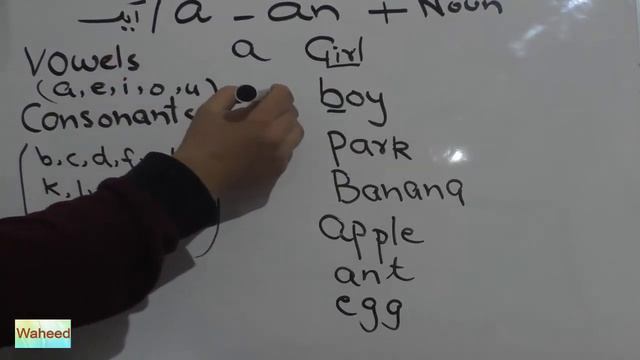 a - an + Noun
Vowels
(a, e, i, o, u)
Consonants
b, c, d, f,
k, l,
a Girl
boy
Park
Banana
apple
ant
egg
Waheed